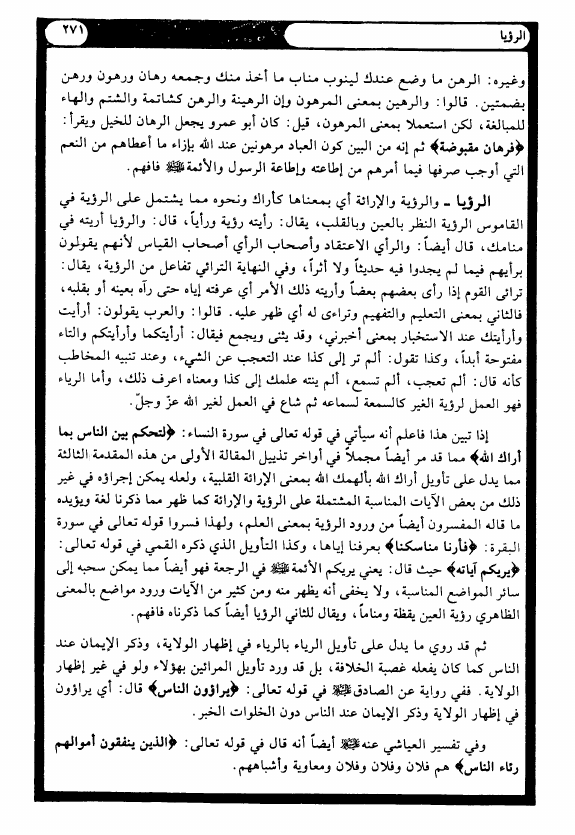 الرؤيا ٢٧١
وغيره: الرهن ما وضع عندك لينوب مناب ما أخذ منك وجمعه رهان ورهون ورهن
بضمتين. قالوا: والرهين بمعنى المرهون وإن الرهينة والرهن كشاتمة والشتم والهاء
للمبالغة، لكن استعملا بمعنى المرهون، قيل: كان أبو عمرو يجعل الرهان للخيل ويقرأ:
﴿فرهان مقبوضة﴾ ثم إنه من البين كون العباد مرهونين عند الله بإزاء ما أعطاهم من النعم
التي أوجب صرفها فيما أمرهم من إطاعته وإطاعة الرسول والأئمة ﷺ فافهم.
الرؤيا ـ والرؤية والإرائة أي بمعناها كأراك ونحوه مما يشتمل على الرؤية في
القاموس الرؤية النظر بالعين وبالقلب، يقال: رأيته رؤية ورأياً، قال: والرؤيا أريته في
منامك، قال أيضاً: والرأي الاعتقاد وأصحاب الرأي أصحاب القياس لأنهم يقولون
برأيهم فيما لم يجدوا فيه حديثاً ولا أثراً، وفي النهاية الترائي تفاعل من الرؤية، يقال:
ترائى القوم إذا رأى بعضهم بعضاً وأريته ذلك الأمر أي عرفته إياه حتى رآه بعينه أو بقلبه،
فالثاني بمعنى التعليم والتفهيم وتراءى له أي ظهر عليه. قالوا: والعرب يقولون: أرأيت
وأرأيتك عند الاستخبار بمعنى أخبرني، وقد يثنى ويجمع فيقال: أرأيتكما وأرأيتكم والتاء
مفتوحة أبداً، وكذا تقول: ألم تر إلى كذا عند التعجب عن الشيء، وعند تنبيه المخاطب
كأنه قال: ألم تعجب، ألم تسمع، ألم ينته علمك إلى كذا ومعناه اعرف ذلك، وأما الرياء
فهو العمل لرؤية الغير كالسمعة لسماعه ثم شاع في العمل لغير الله عزّ وجلّ.
إذا تبين هذا فاعلم أنه سيأتي في قوله تعالى في سورة النساء: ﴿لتحكم بين الناس بما
أراك الله﴾ مما قد مر أيضاً مجملاً في أواخر تذييل المقالة الأولى من هذه المقدمة الثالثة
مما يدل على تأويل أراك الله بألهمك الله بمعنى الإرائة القلبية، ولعله يمكن إجراؤه في غير
ذلك من بعض الآيات المناسبة المشتملة على الرؤية والإرائة كما ظهر مما ذكرنا لغة ويؤيده
ما قاله المفسرون أيضاً من ورود الرؤية بمعنى العلم، ولهذا فسروا قوله تعالى في سورة
البقرة: ﴿فأرنا مناسكنا﴾ بعرفنا إياها، وكذا التأويل الذي ذكره القمي في قوله تعالى:
﴿يريكم آياته﴾ حيث قال: يعني يريكم الأئمة ﷺ في الرجعة فهو أيضاً مما يمكن سحبه إلى
سائر المواضع المناسبة، ولا يخفى أنه يظهر منه ومن كثير من الآيات ورود مواضع بالمعنى
الظاهري رؤية العين يقظة ومناماً، ويقال للثاني الرؤيا أيضاً كما ذكرناه فافهم.
ثم قد روي ما يدل على تأويل الرياء بالرياء في إظهار الولاية، وذكر الإيمان عند
الناس كما كان يفعله غصبة الخلافة، بل قد ورد تأويل المرائين بهؤلاء ولو في غير إظهار
الولاية. ففي رواية عن الصادق ﷺ في قوله تعالى: ﴿يراؤون الناس﴾ قال: أي يراؤون
في إظهار الولاية وذكر الإيمان عند الناس دون الخلوات الخبر.
وفي تفسير العياشي عنه ﷺ أيضاً أنه قال في قوله تعالى: ﴿الذين ينفقون أموالهم
رئاء الناس﴾ هم فلان وفلان وفلان ومعاوية وأشباههم.